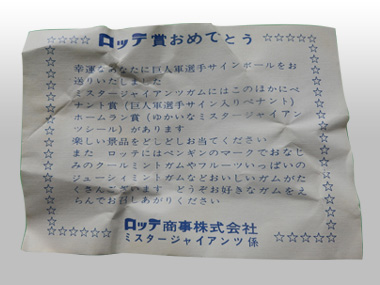 ロッテ賞おめでとう
幸運なあなたに巨人軍選手サインボールをお
送りいたしました
ミスタージャイアンツガムにはこのほかにペ
ナント賞（巨人軍選手サイン入りペナント）
ホームラン賞（ゆかいなミスタージャイアン
ツシール）があります
楽しい景品をどしどしお当てください
また ロッテにはペンギンのマークでおなじ
みのクールミントガムやフルーツいっぱいの
ジューシィミントガムなどおいしいガムがた
くさんございます どうぞお好きなガムをえ
らんでお召しあがりください
ロッテ商事株式会社
ミスタージャイアンツ係